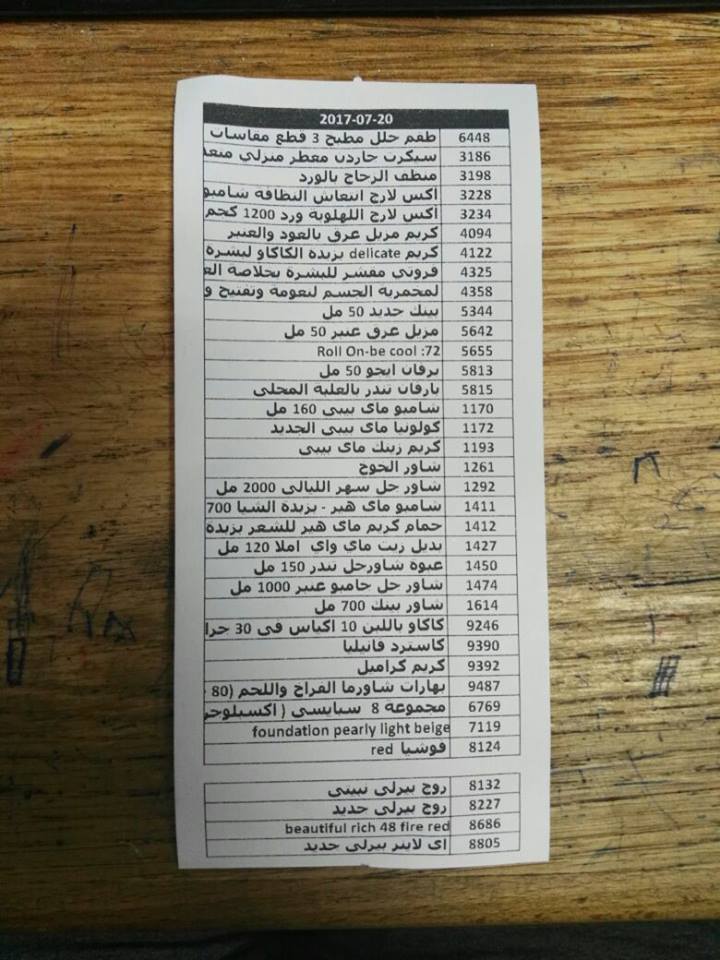 2017-07-20
6448 طقم حلل مطبخ 3 قطع مقاسات
3186 سيكرت جاردن معطر منزلي متعد
3198 منظف الزجاج بالورد
3228 أكس لارج انتعاش النظافة شامبو
3234 أكس لارج اللهلوبة ورد 1200 كجم
4094 كريم مزيل عرق بالعود والعنبر
4122 كريم delicate بزبدة الكاكاو لبشرة
4325 فروتي مقشر للبشرة بخلاصة الع
4358 لمخمرية الجسم لنعومة وتفتيح و
5344 بينك جديد 50 مل
5642 مزيل عرق عنبر 50 مل
5655 Roll On-be cool :72
5813 برفان ايجو 50 مل
5815 بارفان تندر بالعلبة المخلى
1170 شامبو ماى بيبى 160 مل
1172 كولونيا ماى بيبى الجديد
1193 كريم زينك ماى بيبى
1261 شاور الخوخ
1292 شاور جل سهر الليالى 2000 مل
1411 شامبو ماى هير - بزبدة الشيا 700
1412 حمام كريم ماى هير للشعر بزبدة
1427 بديل زيت ماي واي املا 120 مل
1450 عبوة شاورجل تندر 150 مل
1474 شاور جل جامبو عنبر 1000 مل
1614 شاور بينك 700 مل
9246 كاكاو باللبن 10 اكياس فى 30 جرا
9390 كاسترد فانيليا
9392 كريم كراميل
9487 بهارات شاورما الفراخ واللحم (80
6769 مجموعة 8 سبايسي ( اكسبلوجر
7119 foundation pearly light beige
8124 فوشيا red
8132 روج بيرلى نبيتى
8227 روج بيرلى جديد
8686 beautiful rich 48 fire red
8805 اى لاينر بيرلى جديد